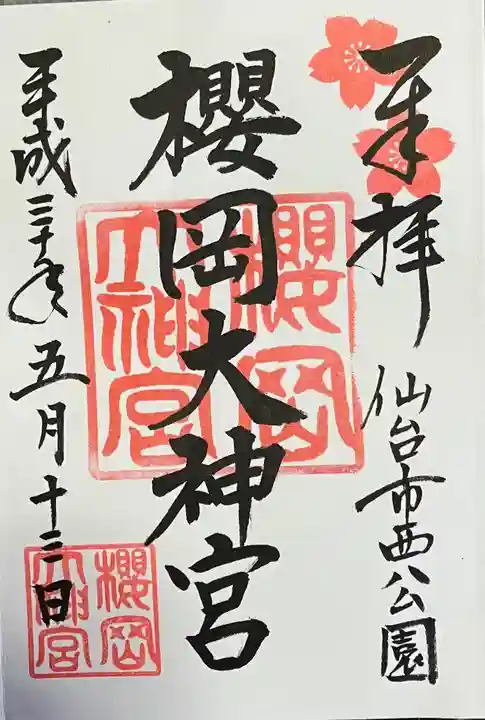 奉拝
仙台市西公園
櫻岡大神宮
櫻岡
大神宮
平成三十年五月十三日
櫻岡
大神宮